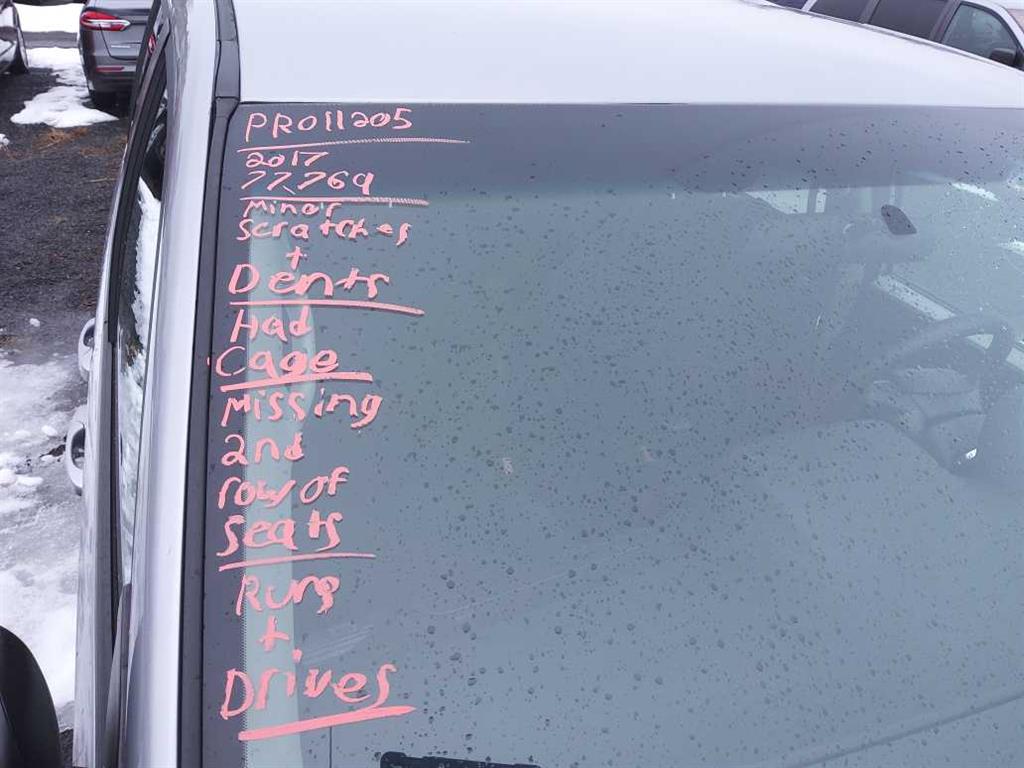 PRO11205
2017
77,769
Minor
Scratches
+
Dents
Had
Cage
Missing
2nd
row of
Seats
Runs
+
Drives